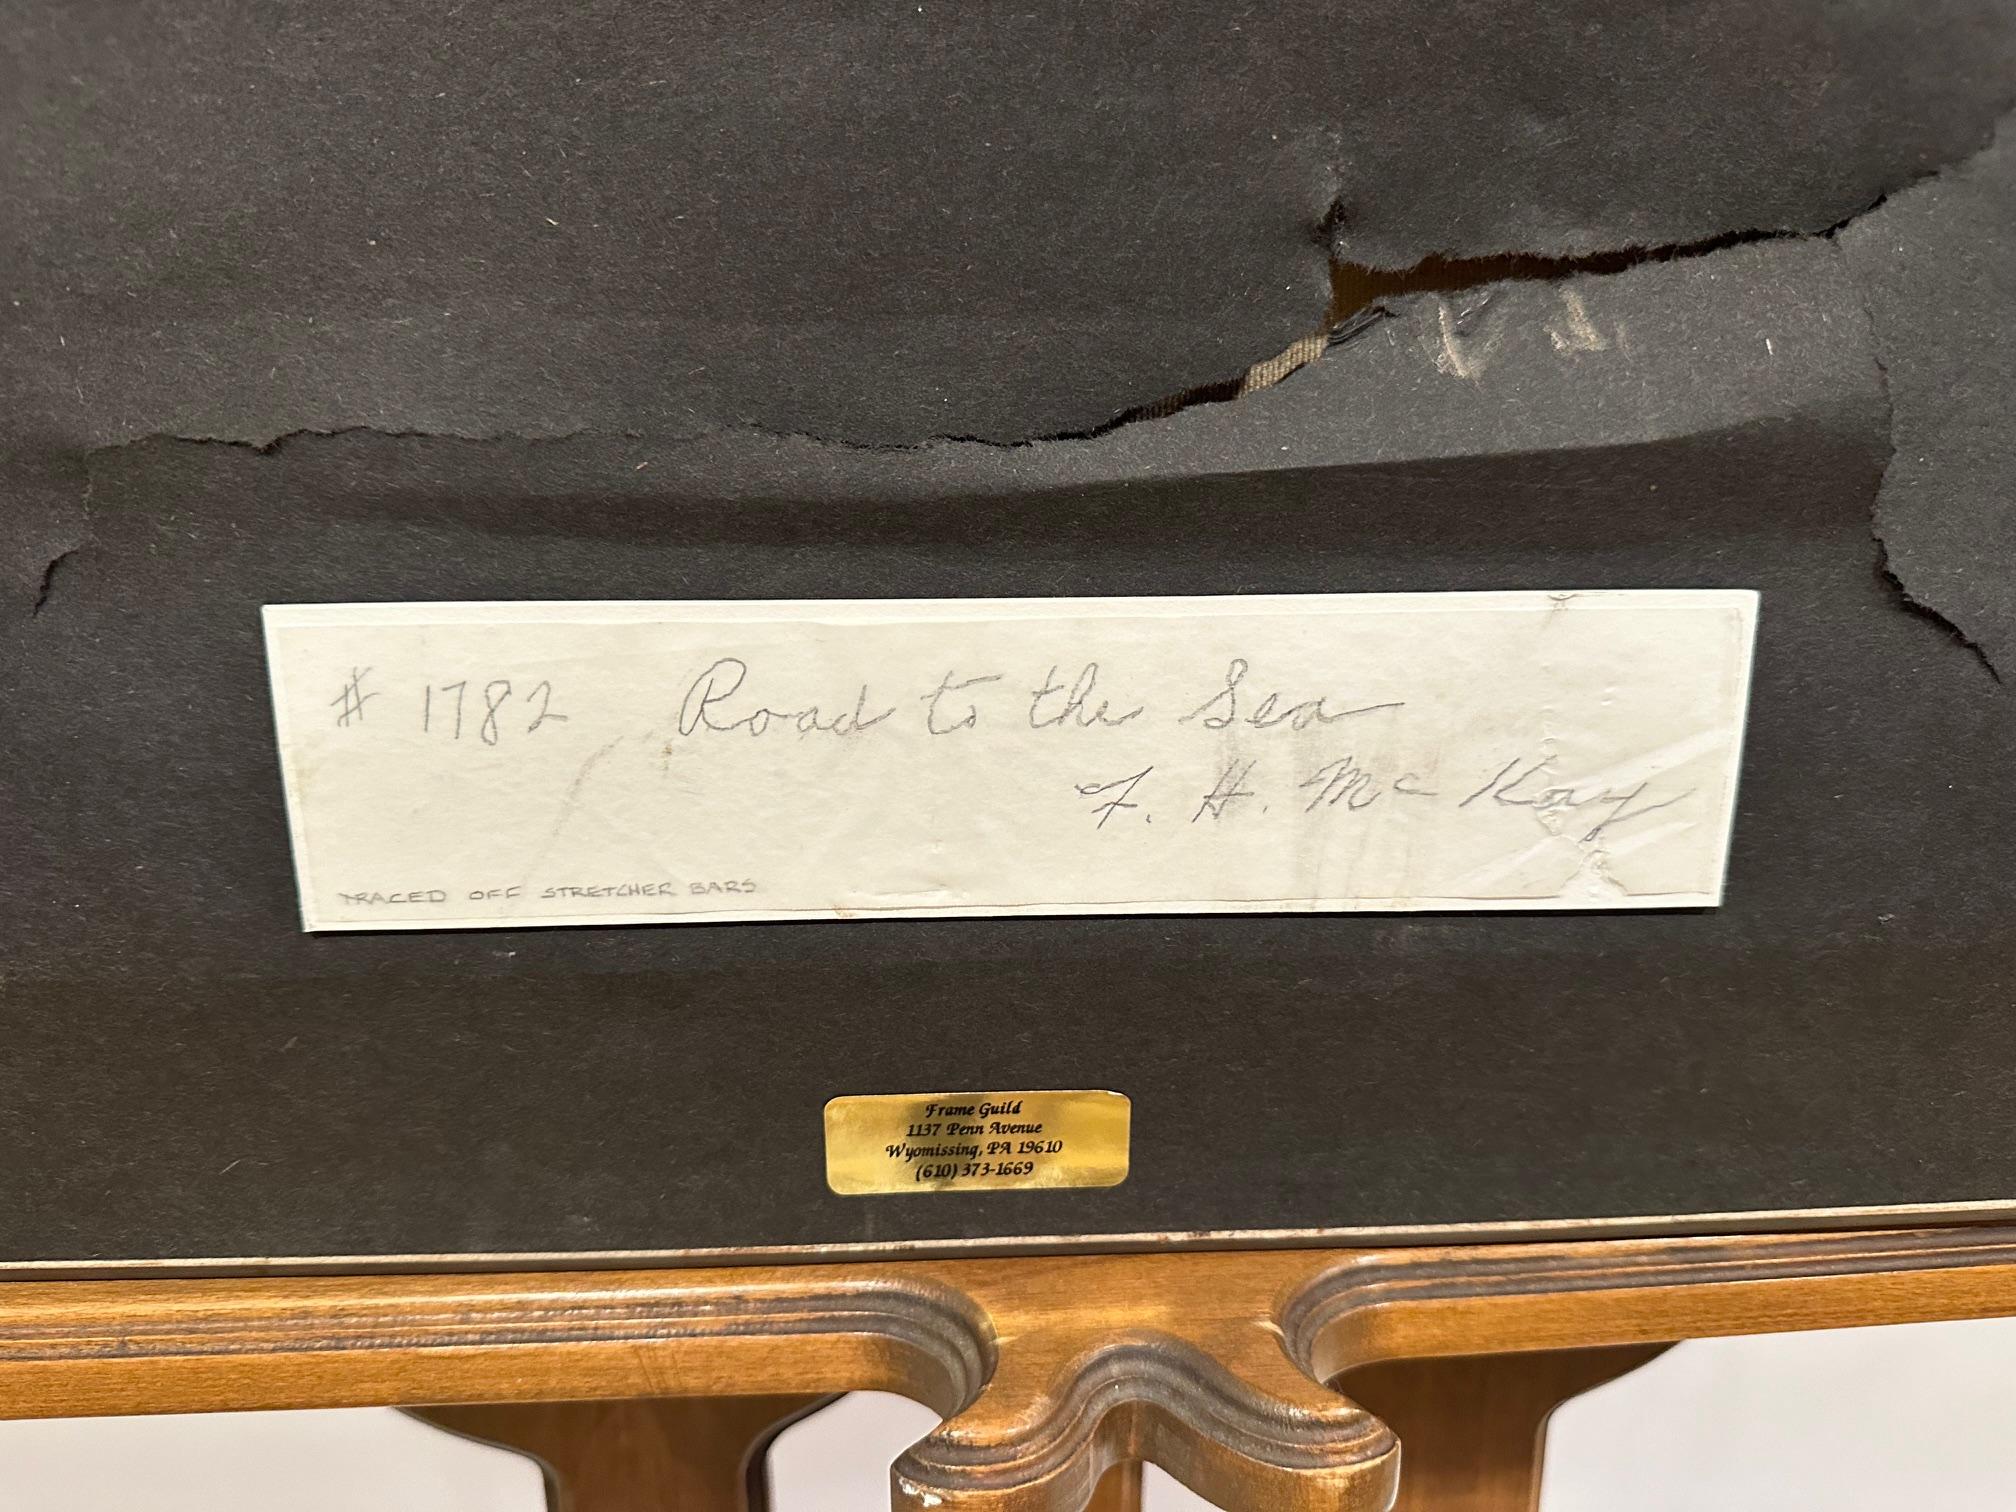 # 1782 Road to the Sea
F. H. Mc Kay
TRACED OFF STRETCHER BARS
Frame Guild
1137 Penn Avenue
Wyomissing, PA 19610
(610) 373-1669